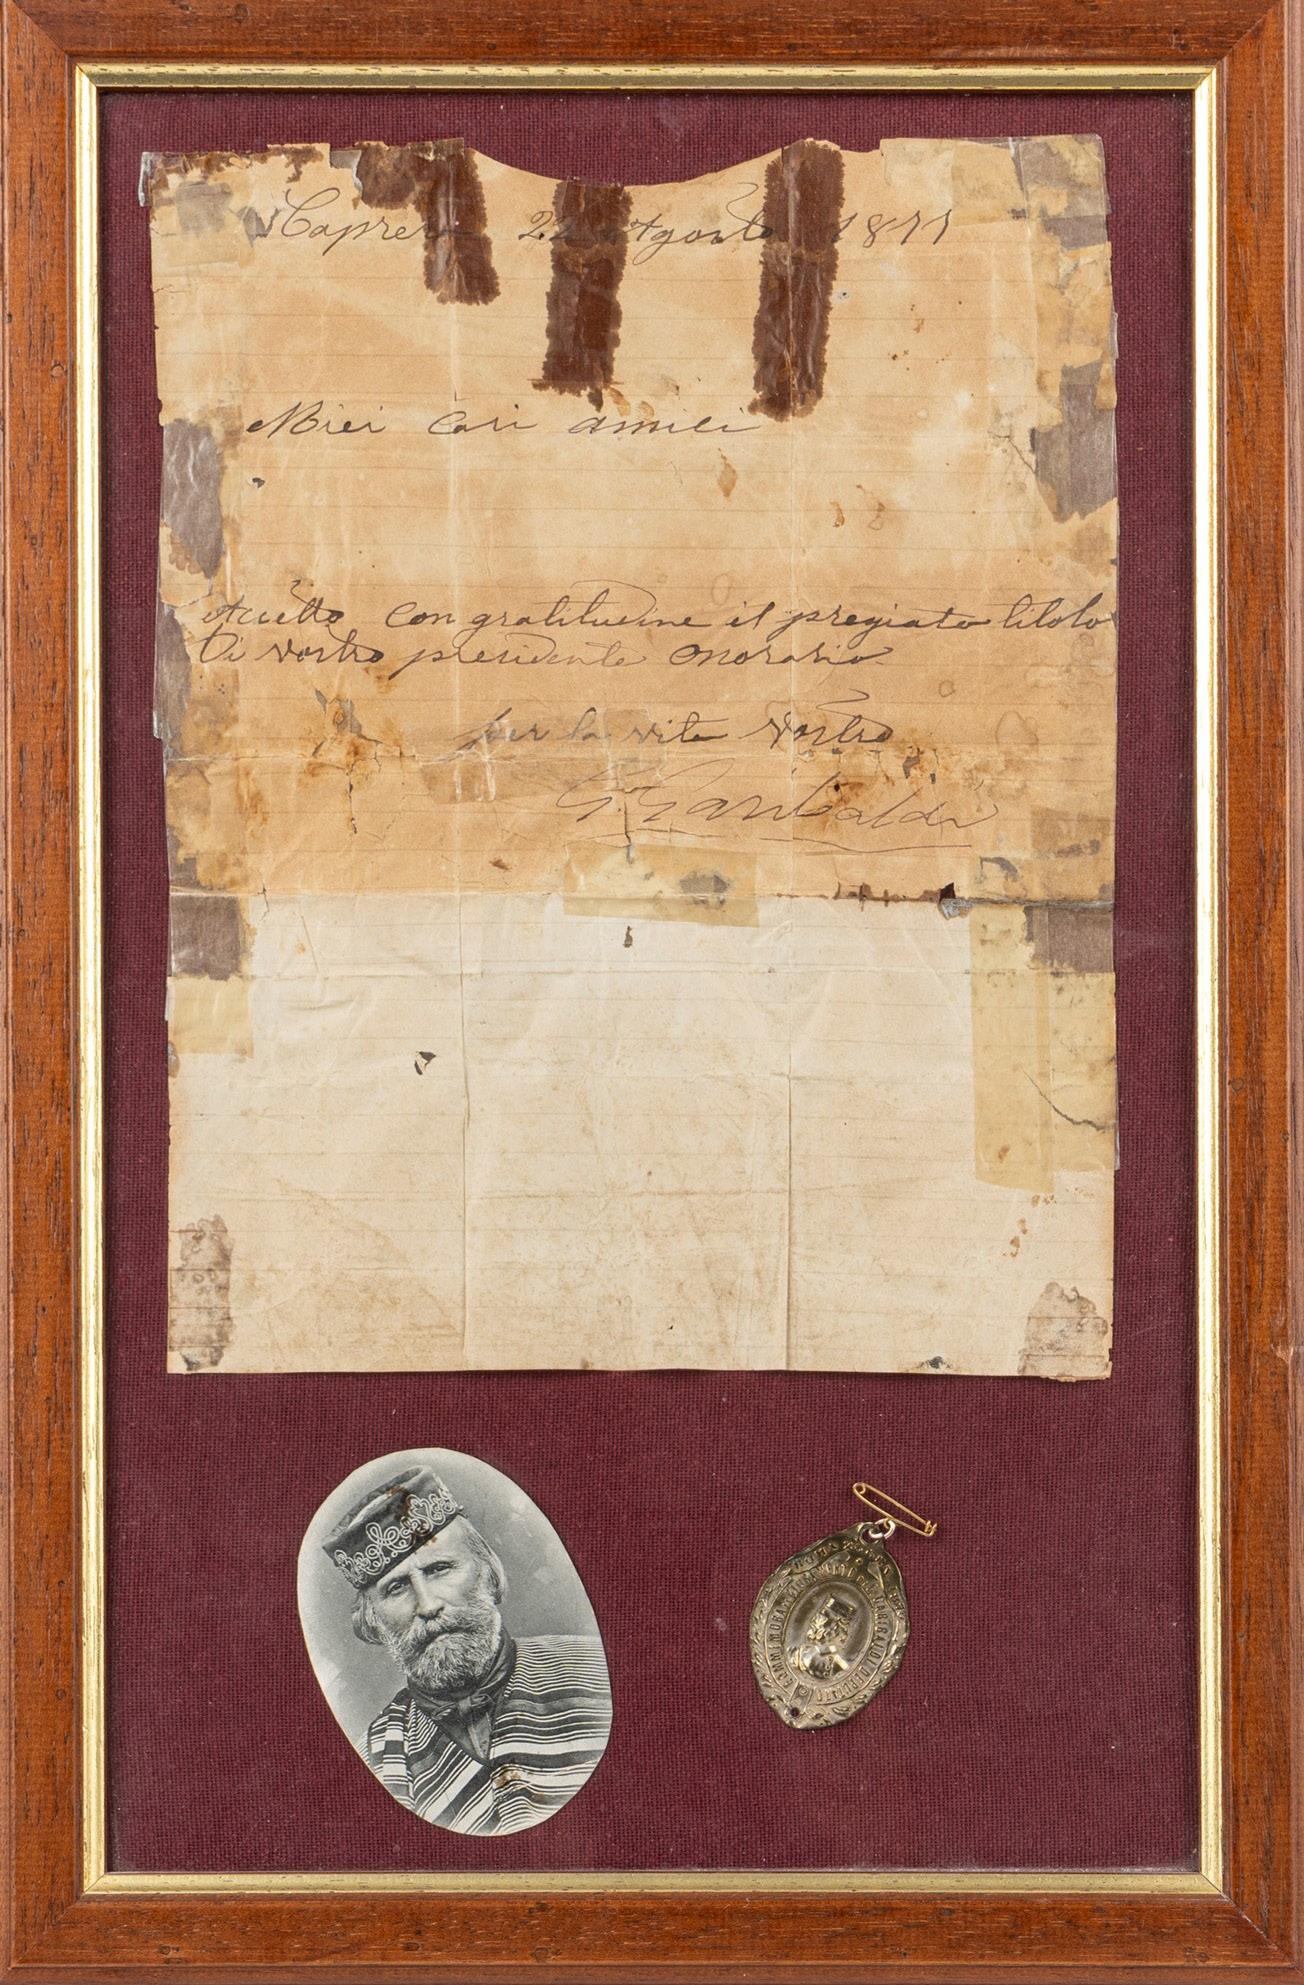 Caprera 22 Agosto 1877
Miei Cari amici
Accetto con gratitudine il pregiato titolo
Di vostro presidente onorario.
per la vita vostro
G Garibaldi